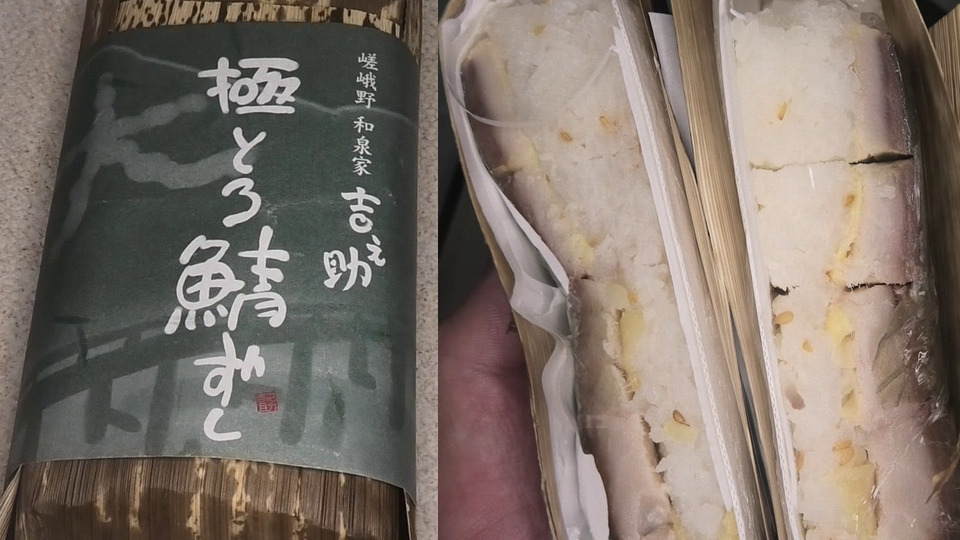 嵯峨野 和泉家 吉之助
極とろ鯖ずし